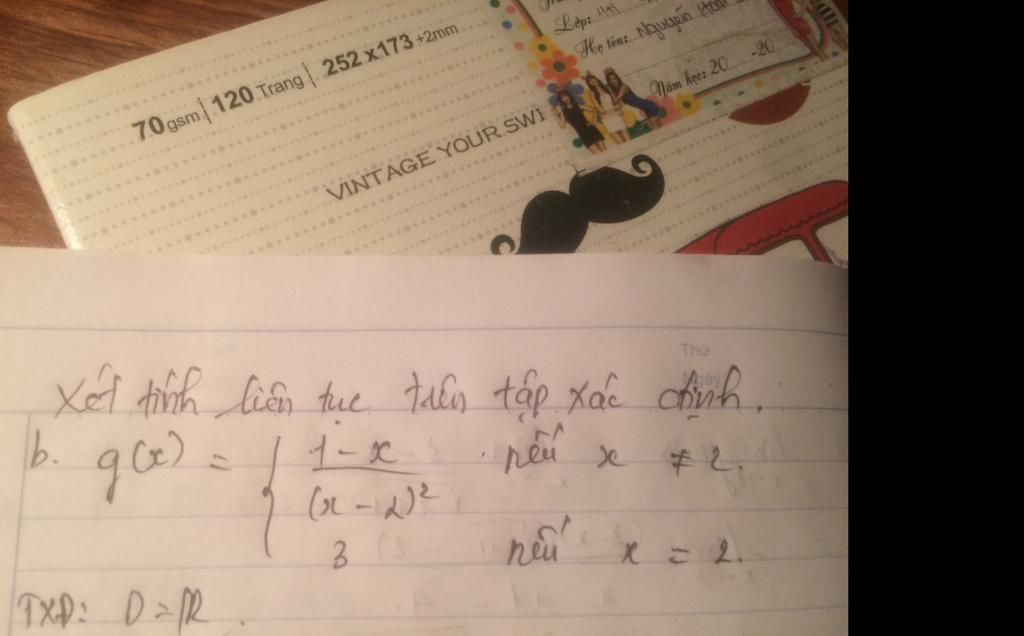 70gsm | 120 Trang | 252 x 173 +2mm
VINTAGE YOUR SWI
Lớp: 11
Họ tên: Nguyễn
Năm học: 20 -20
Thứ
Ngày
Xét tính liên tục trên tập xác định.
b. g(x) = { 1 - x / (x - 2)² nếu x ≠ 2.
3 nếu x = 2.
TXĐ: D = ℝ.